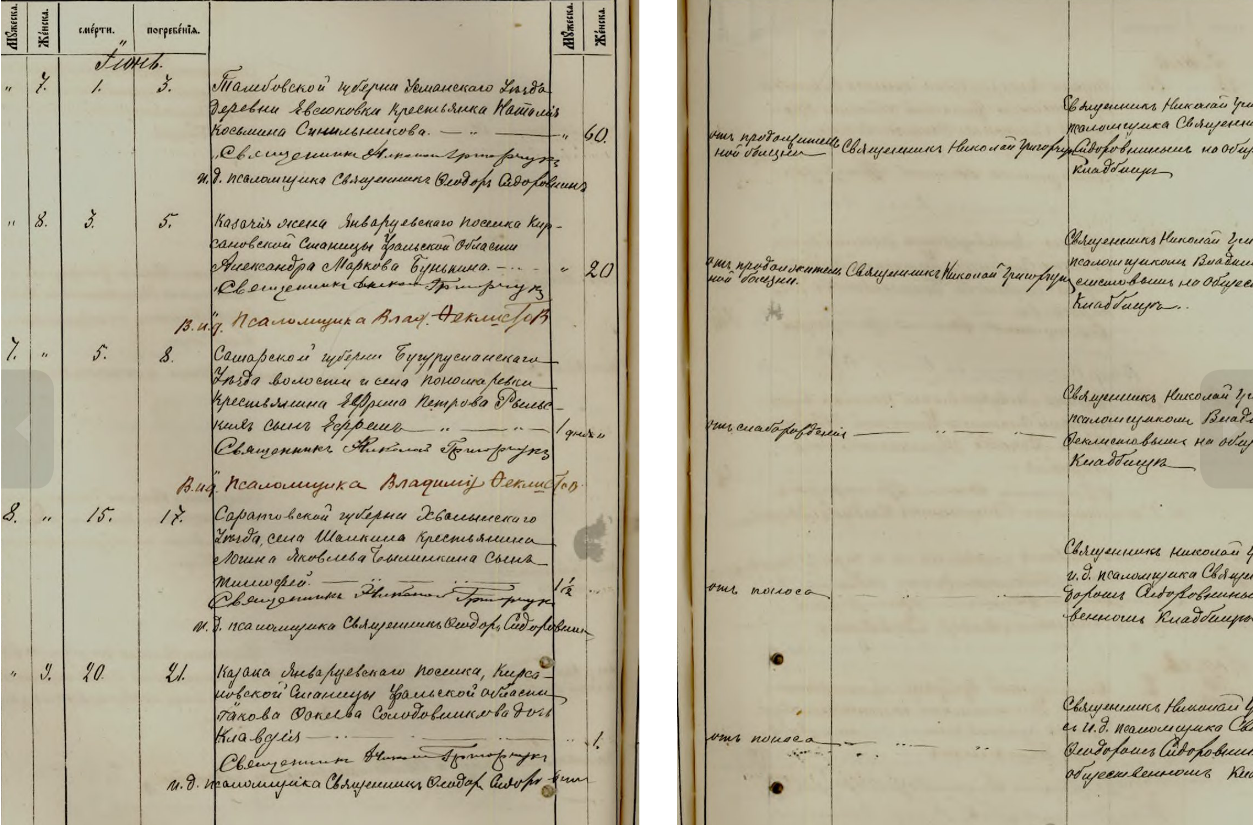 Мꙋ́жеска.
Же́нска.
сме́рти.
погребе́нїѧ.
Мꙋ́жеска.
Же́нска.
Iюнь.
" 7. 1. 3. Тамбовской губерни Усманскаго Уѣзда
деревни Евсюковки крестьянка Наталiя
Косьмина Синильникова. — " — " 60.
Священникъ Николай Григорчукъ
и.д. псаломщика Священникъ Ѳеодоръ Сидоровнинъ
" 8. 3. 5. Казачiя жена Январцевскаго поселка Кир-
сановской Станицы Уральской Области
Александра Маркова Бунькина. — " 20
Священникъ Николай Григорчукъ
В.и.д. Псаломщика Влад. Феклистовъ
7. " 5. 8. Самарской губернiи Бугурусланскаго
Уѣзда волости и села Пономаревки
крестьянина Ефрема Петрова
сынъ Ефремъ — " — " — 1 дня "
Священникъ Николай Григорчукъ
В.и.д. Псаломщика Владимiръ Феклистовъ
8. " 15. 17. Саратовской губернiи Хвалынскаго
Уѣзда, села Шалкина крестьянина
Логина Яковлева сынъ
Тимофей. — 1 1/2
Священникъ Николай Григорчукъ
и.д. псаломщика Священникъ Ѳеодоръ Сидоровнинъ
" 9. 20. 21. Казака Январцевскаго поселка, Кирса-
новской Станицы Уральской области
Iакова Солодовникова дочь
Клавдiя — " 1.
Священникъ Николай Григорчукъ
и.д. псаломщика Священникъ Ѳеодоръ Сидоровнинъ
отъ продолжитель
ной болезни
Священникъ Николай Григорчукъ
Священникъ Николай Григ
псаломщика Священни
Сидоровнинымъ на общ
кладбищѣ
отъ продолжитель
ной болезни.
Священникъ Николай Григорчукъ
Священникъ Николай Григ
псаломщикомъ Владим
клистовымъ на общес
Кладбищѣ.
отъ слаборожденiя
Священникъ Николай Гри
псаломщикомъ Влади
Феклистовымъ на общ
Кладбищѣ
отъ поноса
Священникъ Николай Г
и.д. псаломщика Свящ
доромъ Сидоровниным
венномъ Кладбищѣ
отъ поноса
Священникъ Николай Г
съ и.д. псаломщика Св
Ѳеодоромъ Сидоровнин
общественномъ Кла